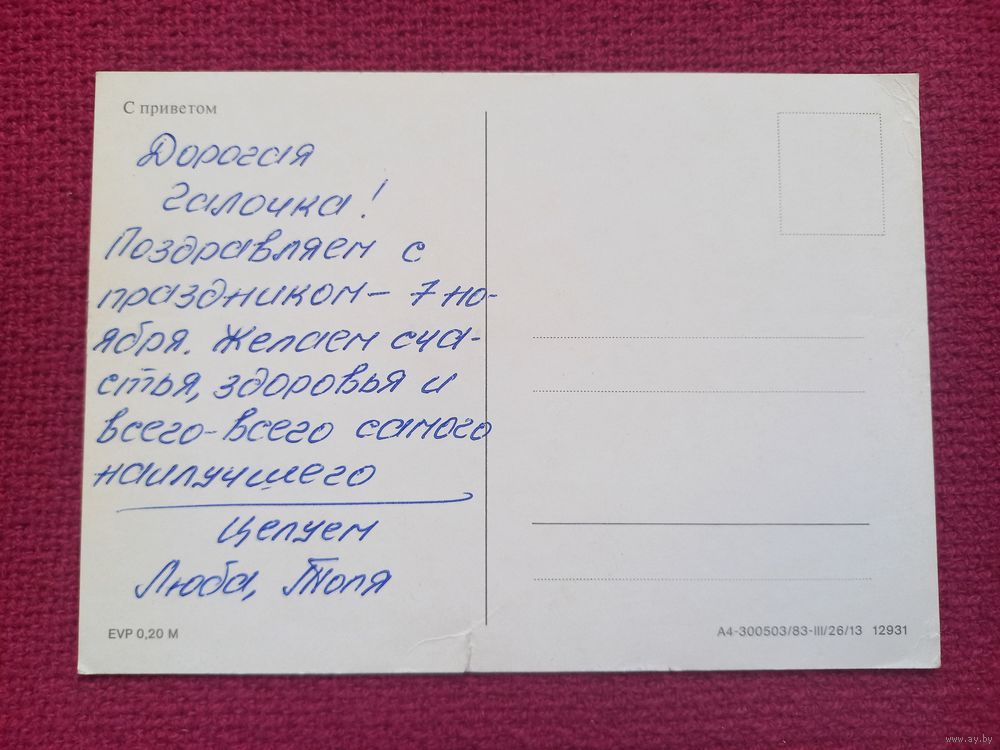 С приветом
Дорогая
Галочка!
Поздравляем с
праздником - 7 но-
ября. Желаем сча-
стья, здоровья и
всего-всего самого
наилучшего
Целуем
Люба, Толя
EVP 0,20 M
A4-300503/83-III/26/13 12931
www.ay.by